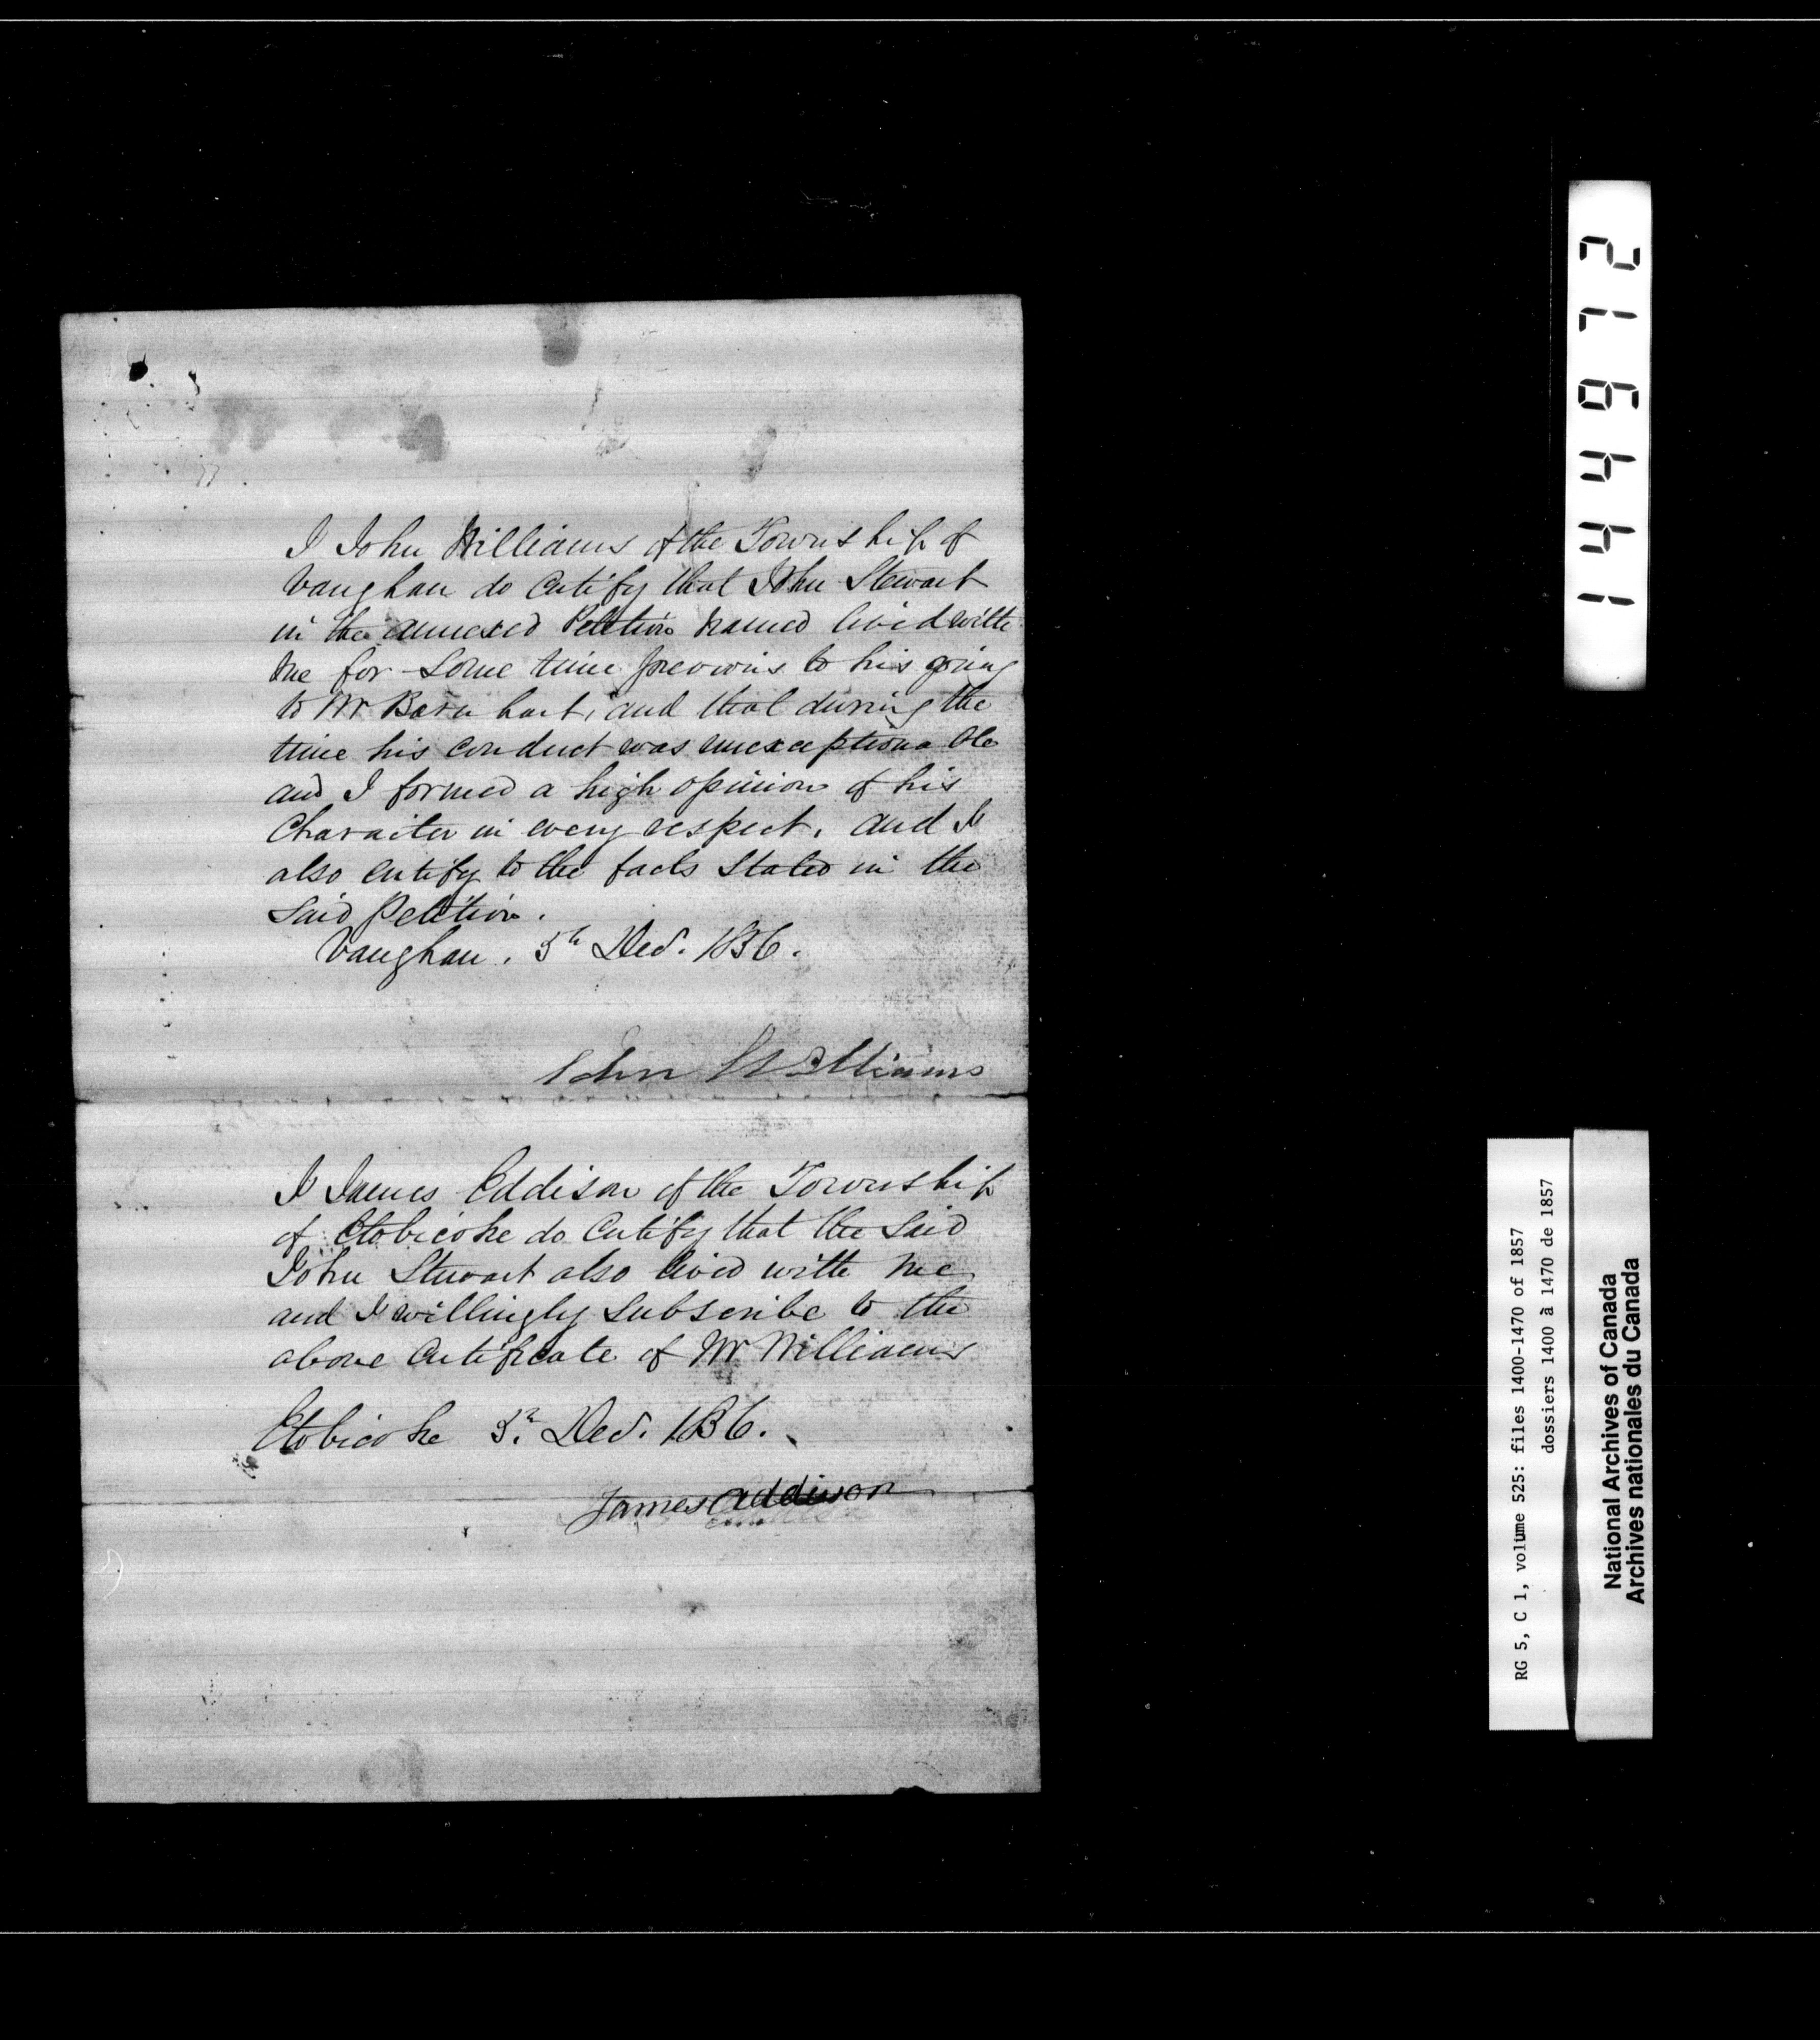 I John Williams of the Township of
Vaughan do Certify that John Stewart
in the annexed Petition named lived with
me for some time previous to his going
to Mr Barnhart, and that during the
time his conduct was unexceptionable
and I formed a high opinion of his
Character in every respect. and I
also certify to the facts stated in the
said Petition.
Vaughan. 5th Decr. 1856.
John Williams
I James Eddison of the Township
of Etobicoke do Certify that the said
John Stewart also lived with me
and I willingly subscribe to the
above Certificate of Mr Williams
Etobicoke 5th Decr. 1856.
James Addison
144612
RG 5, C 1, volume 525: files 1400-1470 of 1857
dossiers 1400 à 1470 de 1857
National Archives of Canada
Archives nationales du Canada